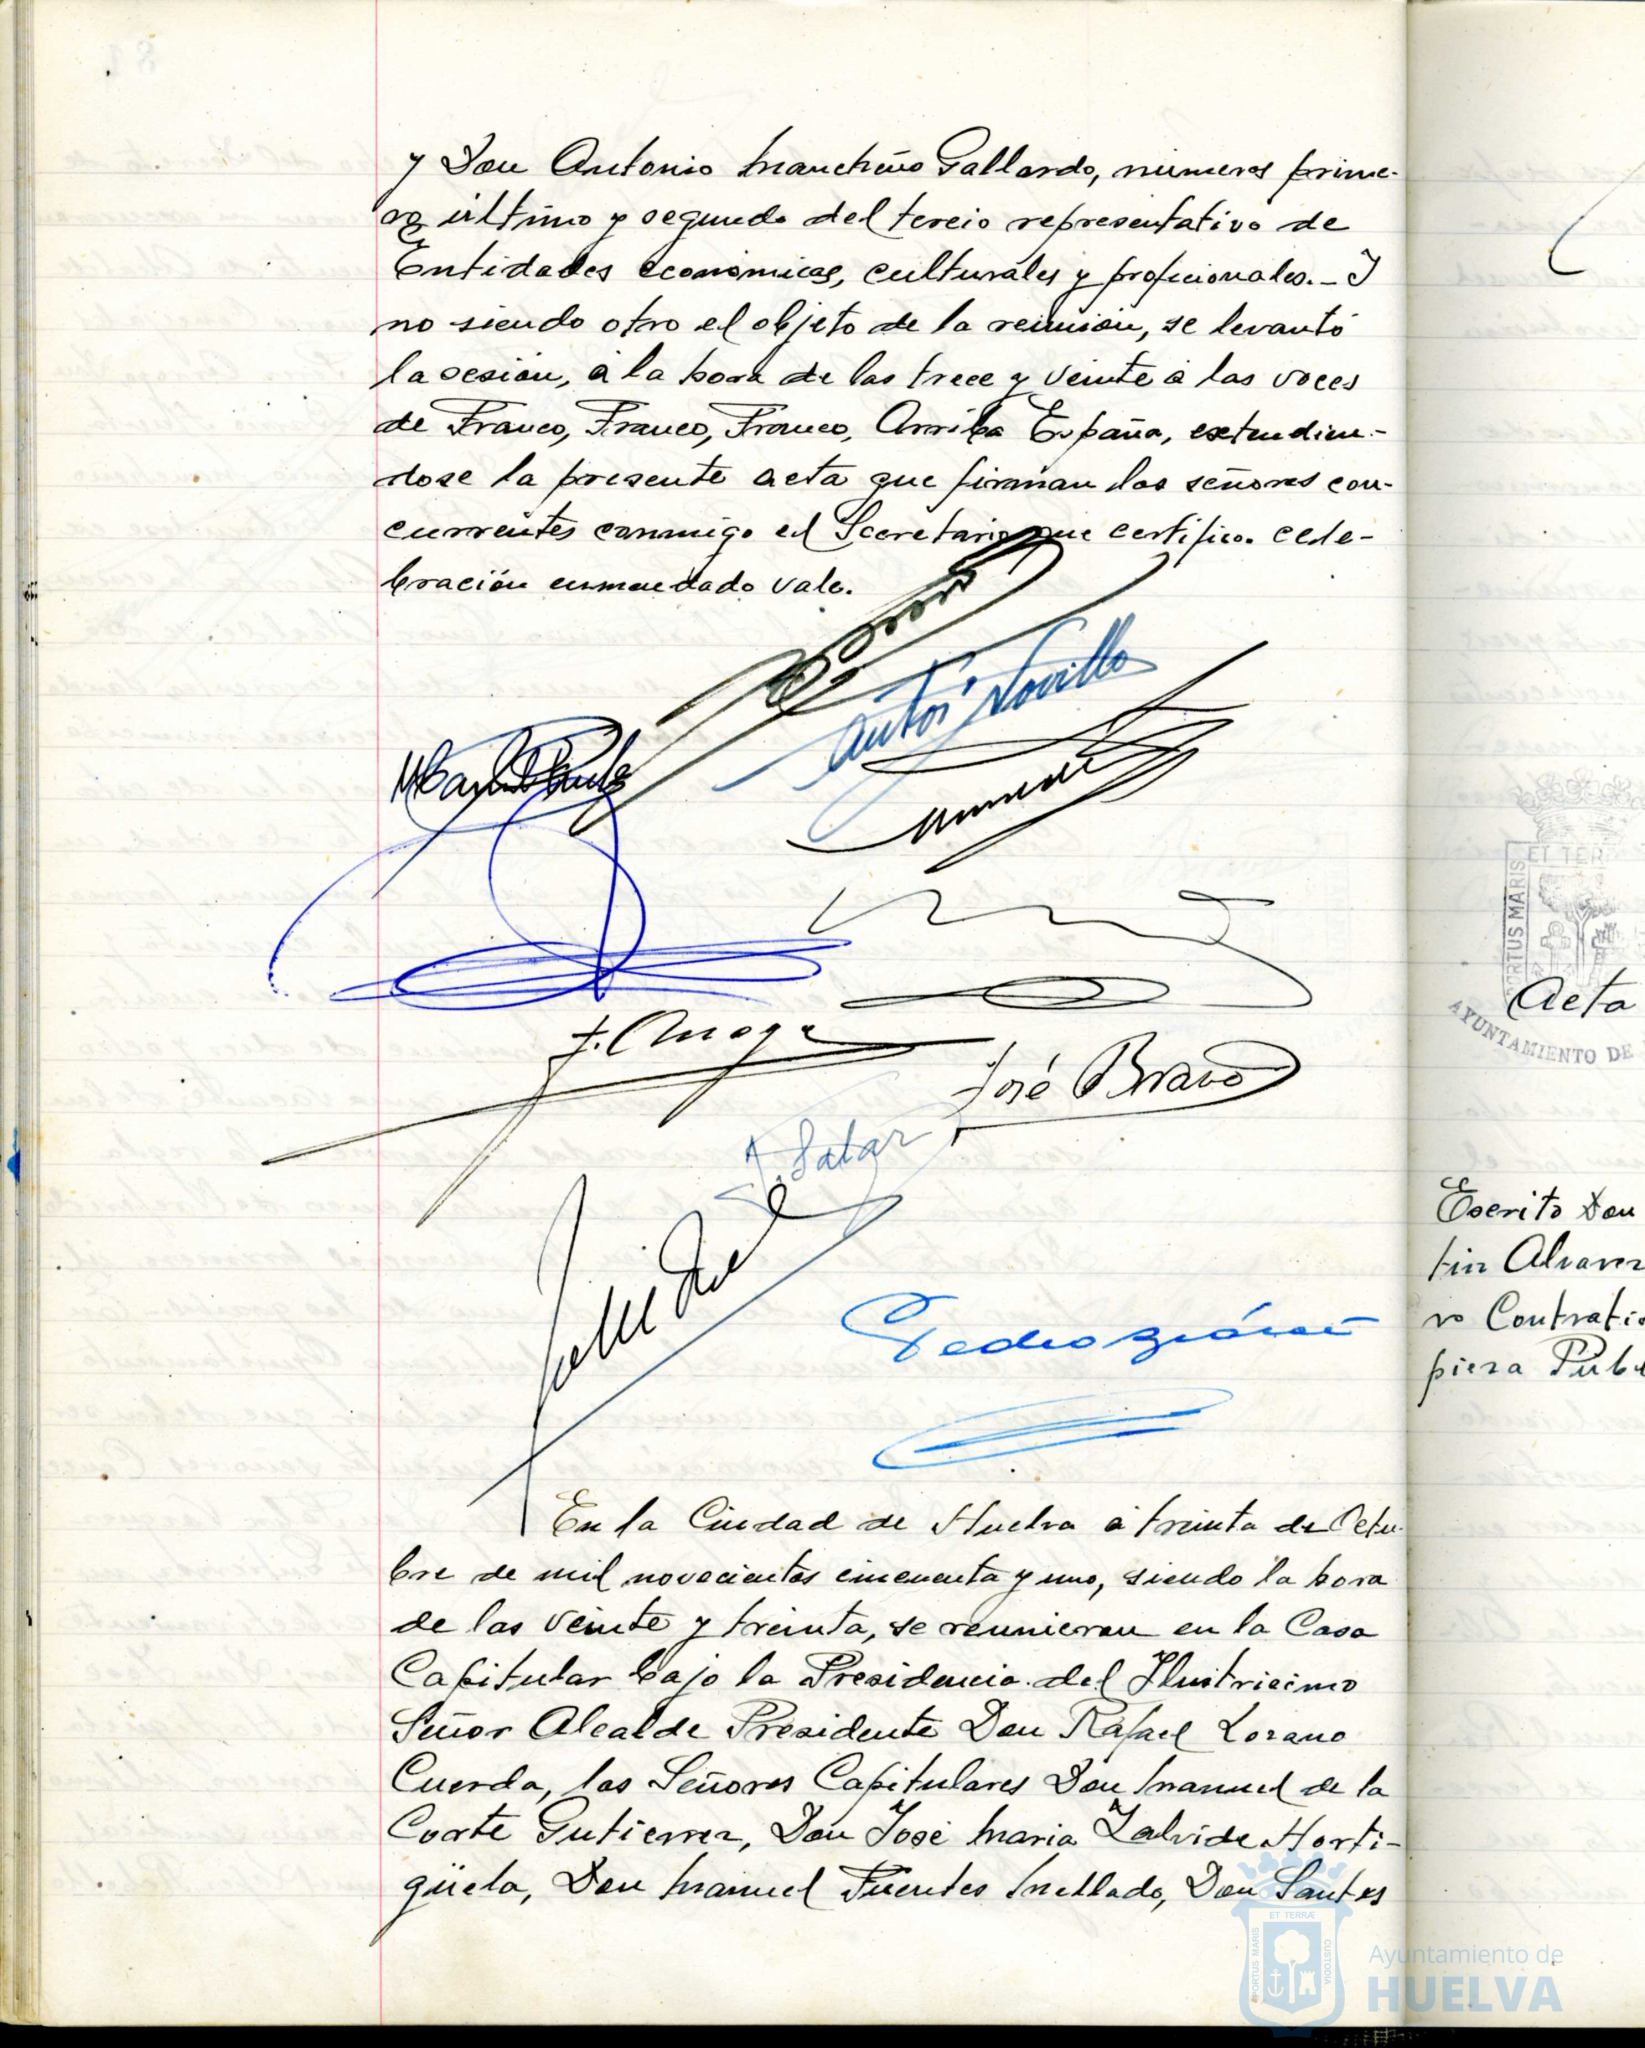 y Don Antonio Mancheño Gallardo, numeros prime-
ro, último y segundo del tercio representativo de
Entidades económicas, culturales y proficionales.- I
no siendo otro el objeto de la reunión, se levantó
la sesión, á la hora de las trece y veinte á las voces
de Franco, Franco, Franco, Arriba España, extendien-
dose la presente acta que firman los señores con-
currentes conmigo el Secretario que certifico. cele-
bración enmendado vale.
Antº Novillo
José Bravo
En la Ciudad de Huelva á treinta de Octu-
bre de mil novecientos cincuenta y uno, siendo la hora
de las veinte y treinta, se reunieron en la Casa
Capitular bajo la Presidencia del Ilustricimo
Señor Alcalde Presidente Don Rafael Lozano
Cuerda, los Señores Capitulares Don Manuel de la
Corte Gutierrez, Don José Maria Zalvide Horti-
güela, Don Manuel Fuentes Mellado, Don Santos
ET TER
PORTUS MARIS
Acta
AYUNTAMIENTO DE
Escrito Don
tin Alvarez
ro Contratis
pieza Pub
ET TERRÆ
PORTUS MARIS
CUSTODIA
Ayuntamiento de
HUELVA